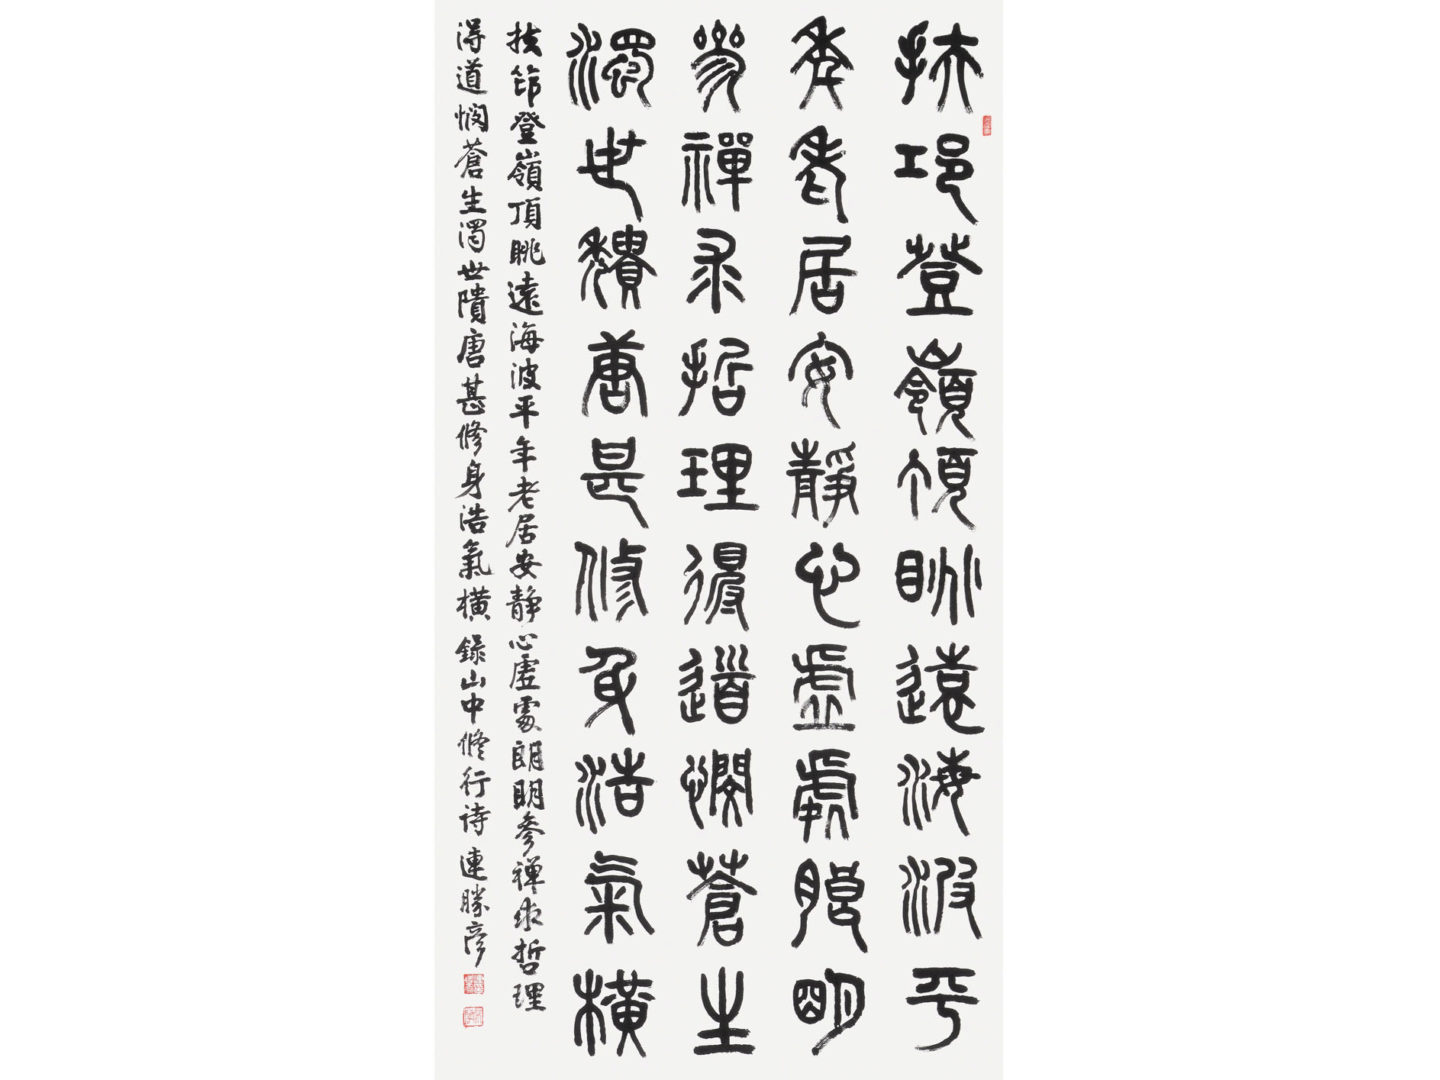 扶邛登嶺頂眺遠海波平
年老居安靜心虛處朗明
參禪求哲理得道憫蒼生
濁世穨唐甚修身浩氣橫
扶筇登嶺頂眺遠海波平年老居安靜心虛處朗明參禪求哲理
得道憫蒼生濁世隤唐甚修身浩氣橫 錄山中修行诗 連勝彦